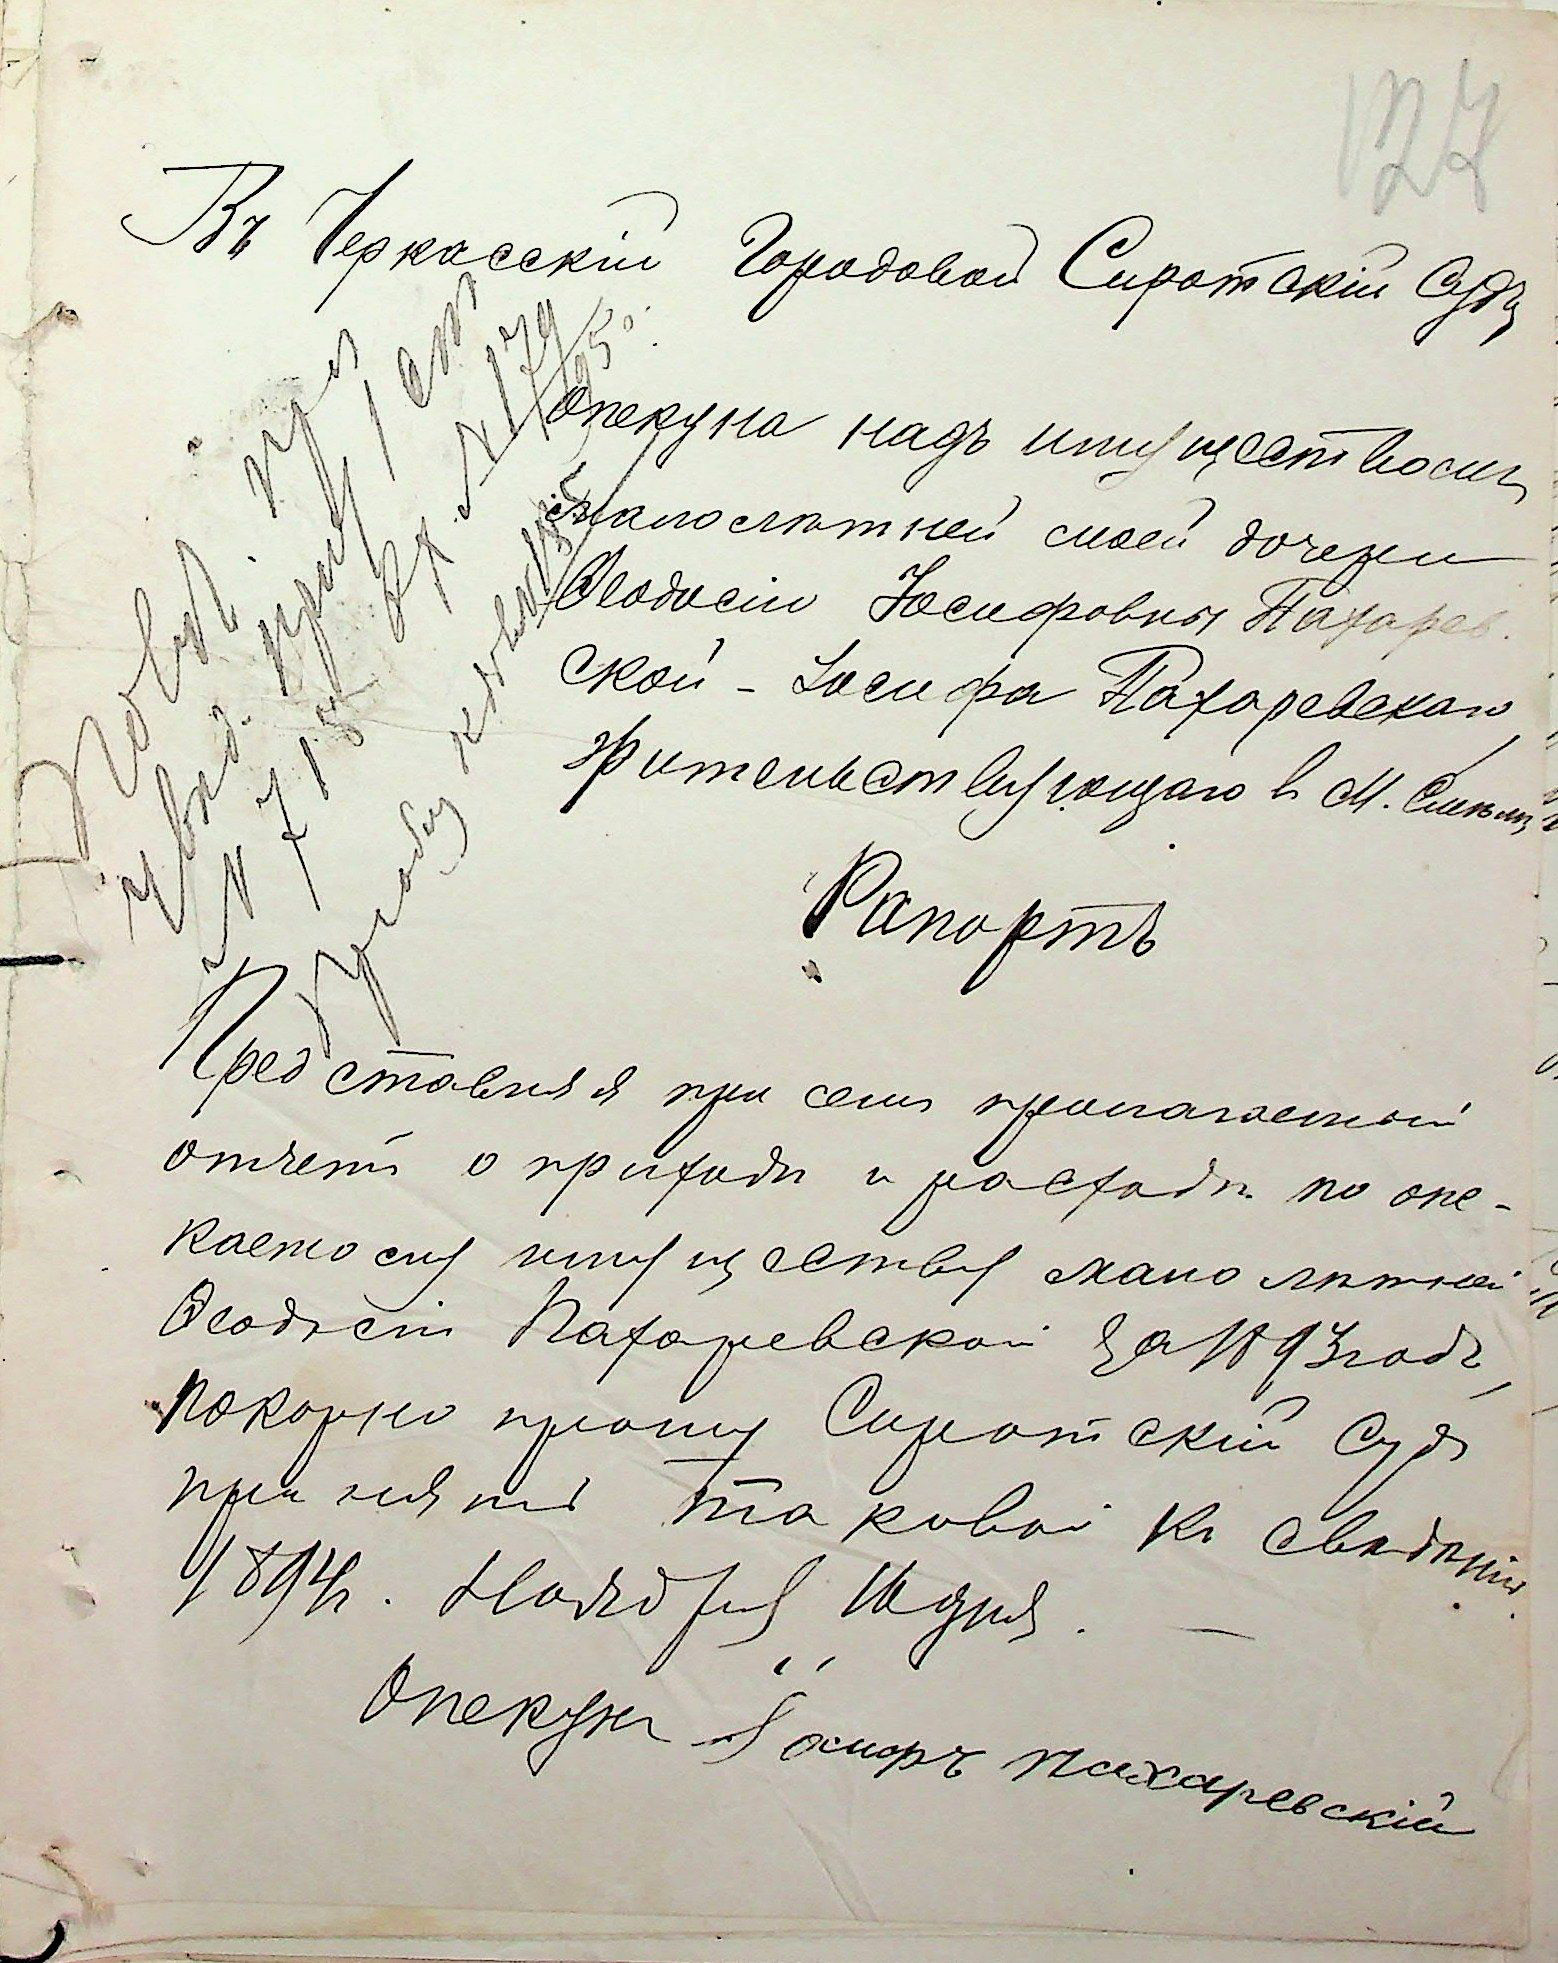 127
Въ Черкасскій Городовой Сиротскій Судъ
Опекуна надъ имуществомъ
малолѣтней моей дочери
Ѳеодосіи Іосифовны Пахарев-
ской - Іосифа Пахаревскаго,
жительствующаго в м.
Рапортъ
Представляя при семъ прилагаемый
отчетъ о приходѣ и расходѣ по опе-
каемому имуществу малолѣтней
Ѳеодосіи Пахаревской за 1893 годъ,
покорно прошу Сиротскій Судъ
принять таковой къ свѣдѣнію.
1894 г. Ноября 10 дня. —
Опекунъ Іосифъ Пахаревскій